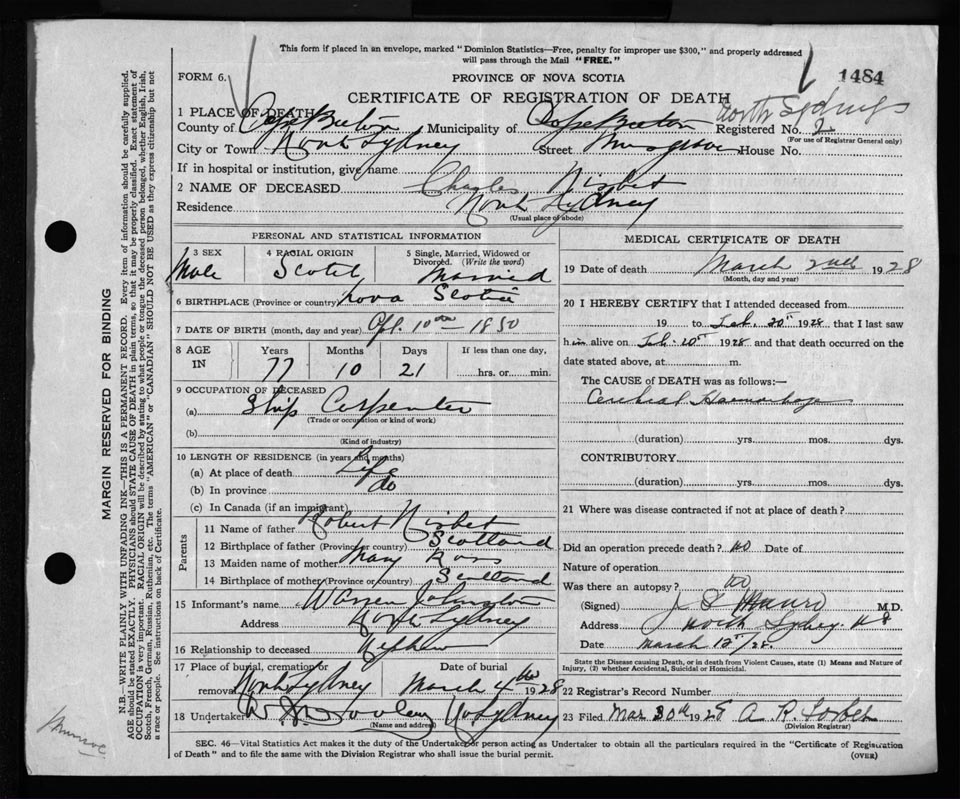 This form if placed in an envelope, marked "Dominion Statistics—Free, penalty for improper use $300," and properly addressed
will pass through the Mail "FREE."
FORM 6. PROVINCE OF NOVA SCOTIA 1484
CERTIFICATE OF REGISTRATION OF DEATH North Sydney
1 PLACE OF DEATH
County of Cape Breton Municipality of Cape Breton Registered No. 2
(For use of Registrar General only)
City or Town North Sydney Street Musgrave House No.
If in hospital or institution, give name
2 NAME OF DECEASED Charles Nisbet
Residence North Sydney
(Usual place of abode)
PERSONAL AND STATISTICAL INFORMATION
3 SEX Male 4 RACIAL ORIGIN Scotch 5 Single, Married, Widowed or Divorced. (Write the word) Married
6 BIRTHPLACE (Province or country) Nova Scotia
7 DATE OF BIRTH (month, day and year) Apl. 10th — 1850
8 AGE IN Years Months Days If less than one day,
77 10 21 hrs. or min.
9 OCCUPATION OF DECEASED
(a) Ship Carpenter
(Trade or occupation or kind of work)
(b)
(Kind of industry)
10 LENGTH OF RESIDENCE (in years and months)
(a) At place of death Life
(b) In province do
(c) In Canada (if an immigrant)
Parents
11 Name of father Robert Nisbet
12 Birthplace of father (Province or country) Scotland
13 Maiden name of mother Mary Ross
14 Birthplace of mother (Province or country) Scotland
15 Informant's name Warren Johnston
Address North Sydney
16 Relationship to deceased Nephew
17 Place of burial, cremation or removal North Sydney Date of burial March 4th 1928
18 Undertaker Dooley No Sydney
(Name and address)
MEDICAL CERTIFICATE OF DEATH
19 Date of death March 2nd 1928
(Month, day and year)
20 I HEREBY CERTIFY that I attended deceased from
19 to Feb. 20th 1928 that I last saw
him alive on Feb. 20th 1928 and that death occurred on the
date stated above, at m.
The CAUSE OF DEATH was as follows:—
Cerebral Haemorrhage
(duration) yrs. mos. dys.
CONTRIBUTORY
(duration) yrs. mos. dys.
21 Where was disease contracted if not at place of death?
Did an operation precede death? no Date of
Nature of operation
Was there an autopsy? no
(Signed) J S Munro M.D.
Address North Sydney. N S
Date March 12th/28.
State the Disease causing Death, or in death from Violent Causes, state (1) Means and Nature of
Injury, (2) whether Accidental, Suicidal or Homicidal.
22 Registrar's Record Number
23 Filed Mar 30th 1928 A R Forbes
(Division Registrar)
SEC. 46—Vital Statistics Act makes it the duty of the Undertaker or person acting as Undertaker to obtain all the particulars required in the "Certificate of Registration
of Death" and to file the same with the Division Registrar who shall issue the burial permit. (OVER)
MARGIN RESERVED FOR BINDING
N.B.—WRITE PLAINLY WITH UNFADING INK—THIS IS A PERMANENT RECORD. Every item of information should be carefully supplied.
AGE should be stated EXACTLY. PHYSICIANS should STATE CAUSE OF DEATH in plain terms, so that it may be properly classified. Exact statement of
OCCUPATION is very important. RACIAL ORIGIN will be described by stating to what people or tongue the deceased person belonged, whether English, Irish,
Scotch, French, German, Russian, Ruthenian, etc. The terms "AMERICAN" or "CANADIAN" SHOULD NOT BE USED as they express citizenship but not
a race or people. See instructions on back of Certificate.